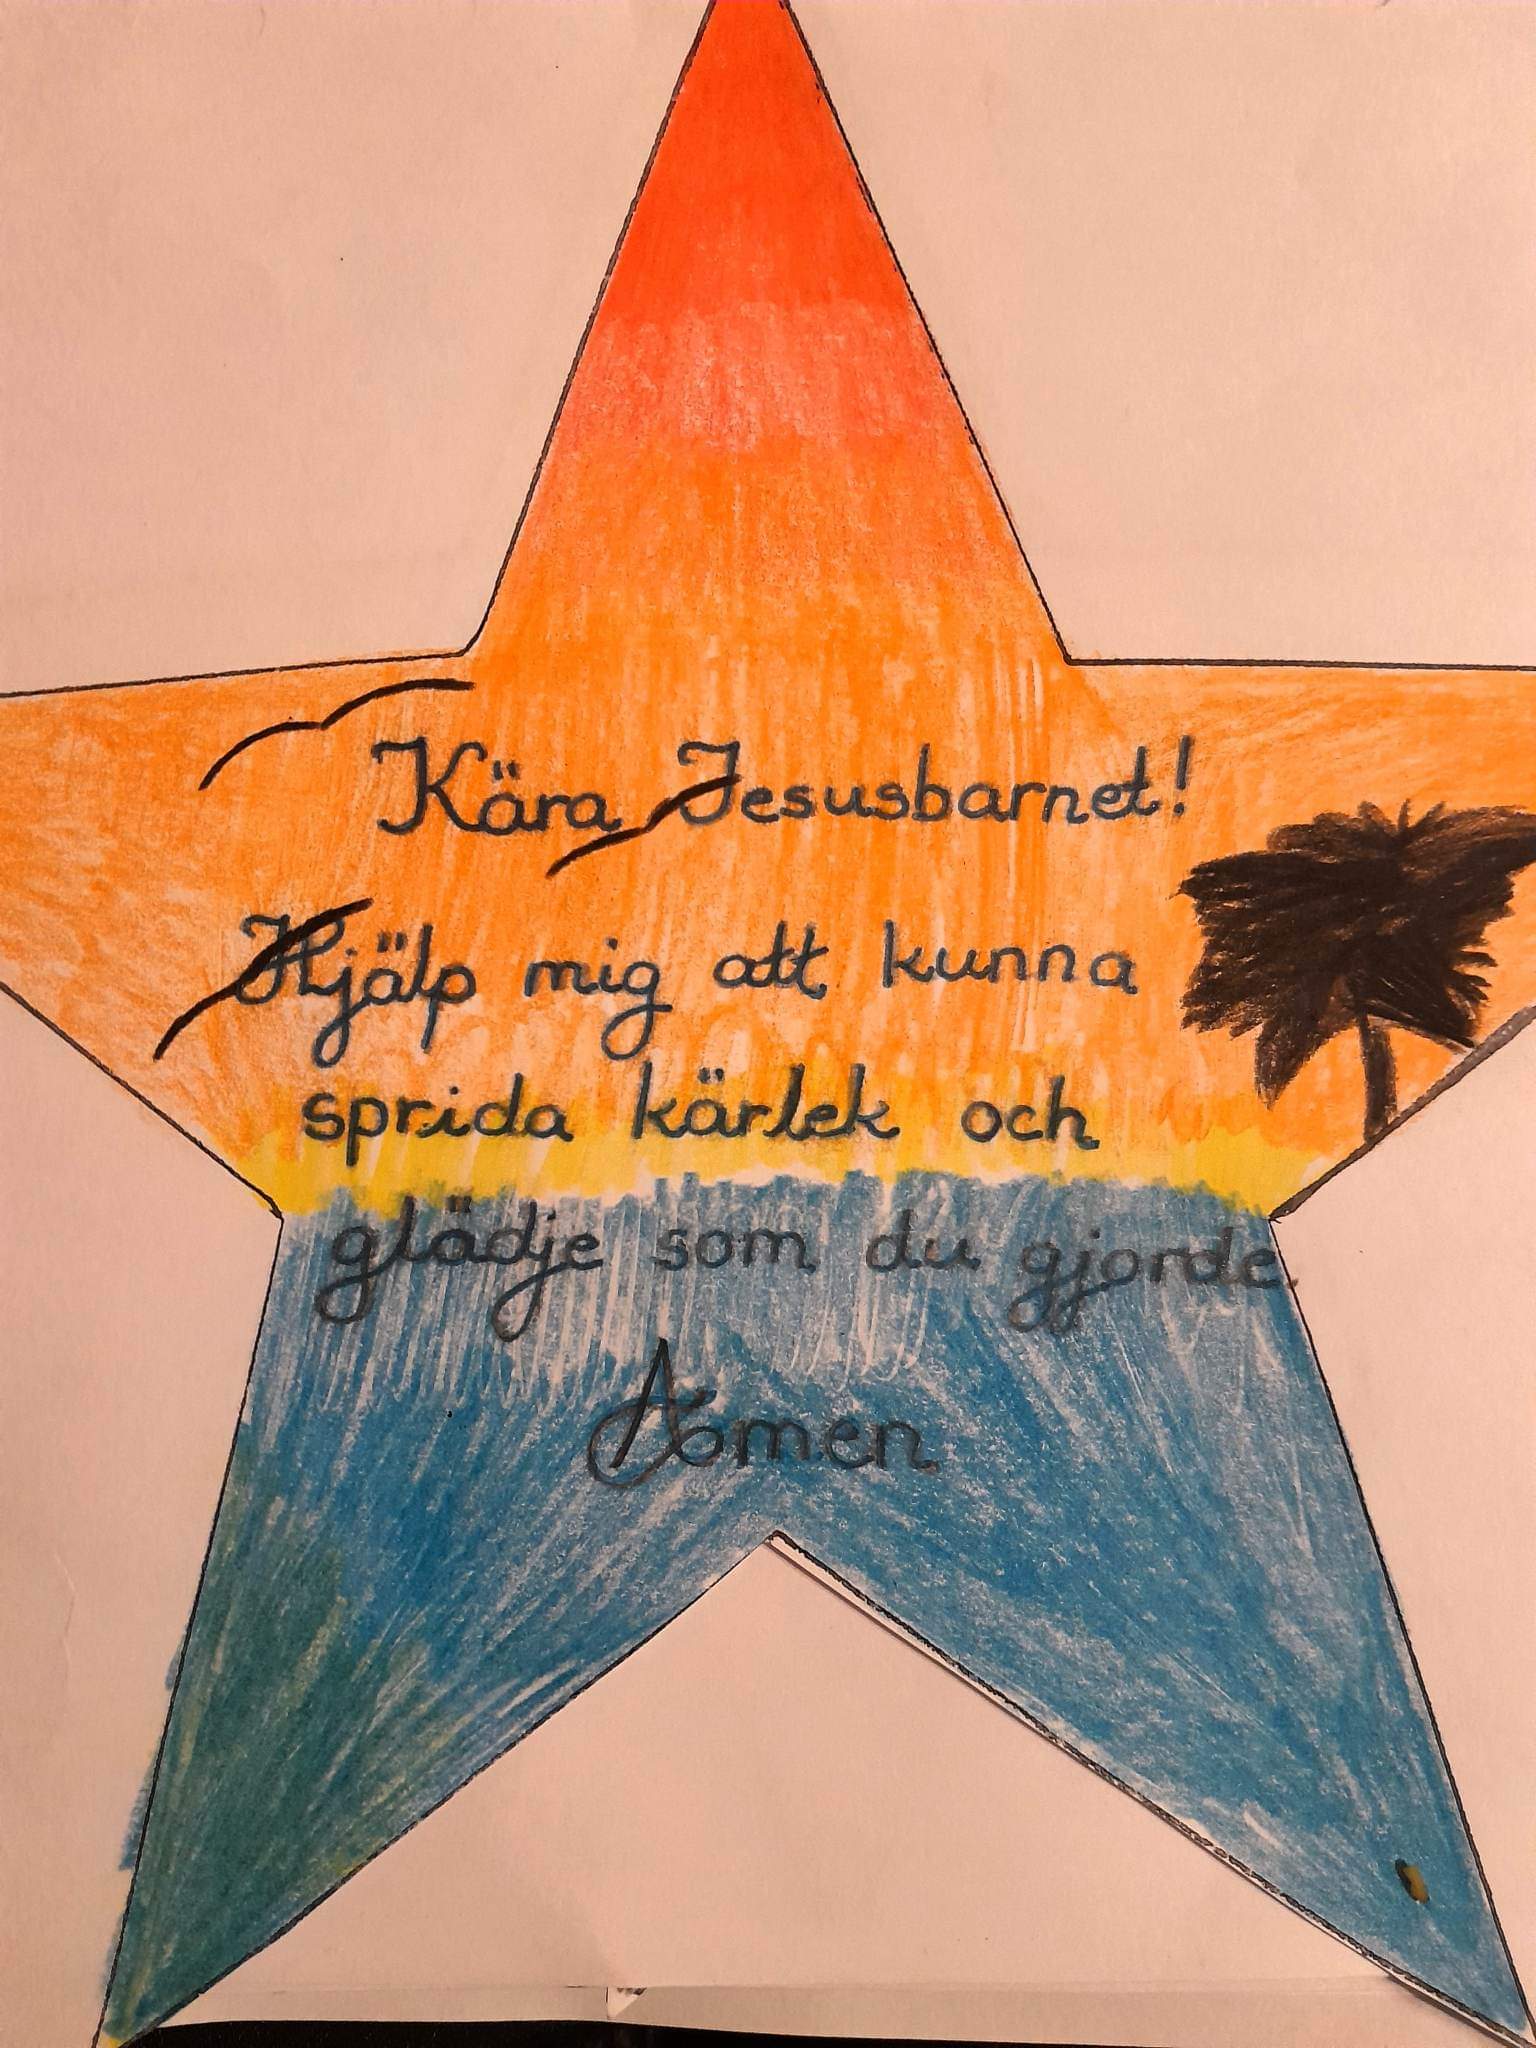 Kära Jesusbarnet!
Hjälp mig att kunna
sprida kärlek och
glädje som du gjorde.
Amen